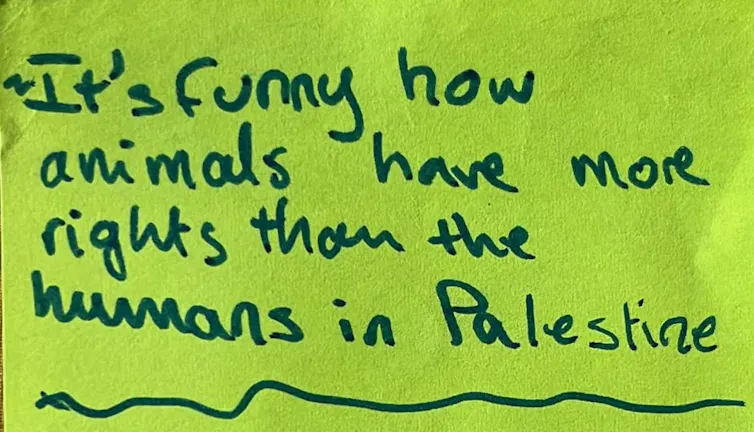 ~It's funny how
animals have more
rights than the
humans in Palestine